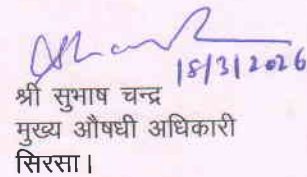 18/3/2026
श्री सुभाष चन्द्र
मुख्य औषधी अधिकारी
सिरसा।